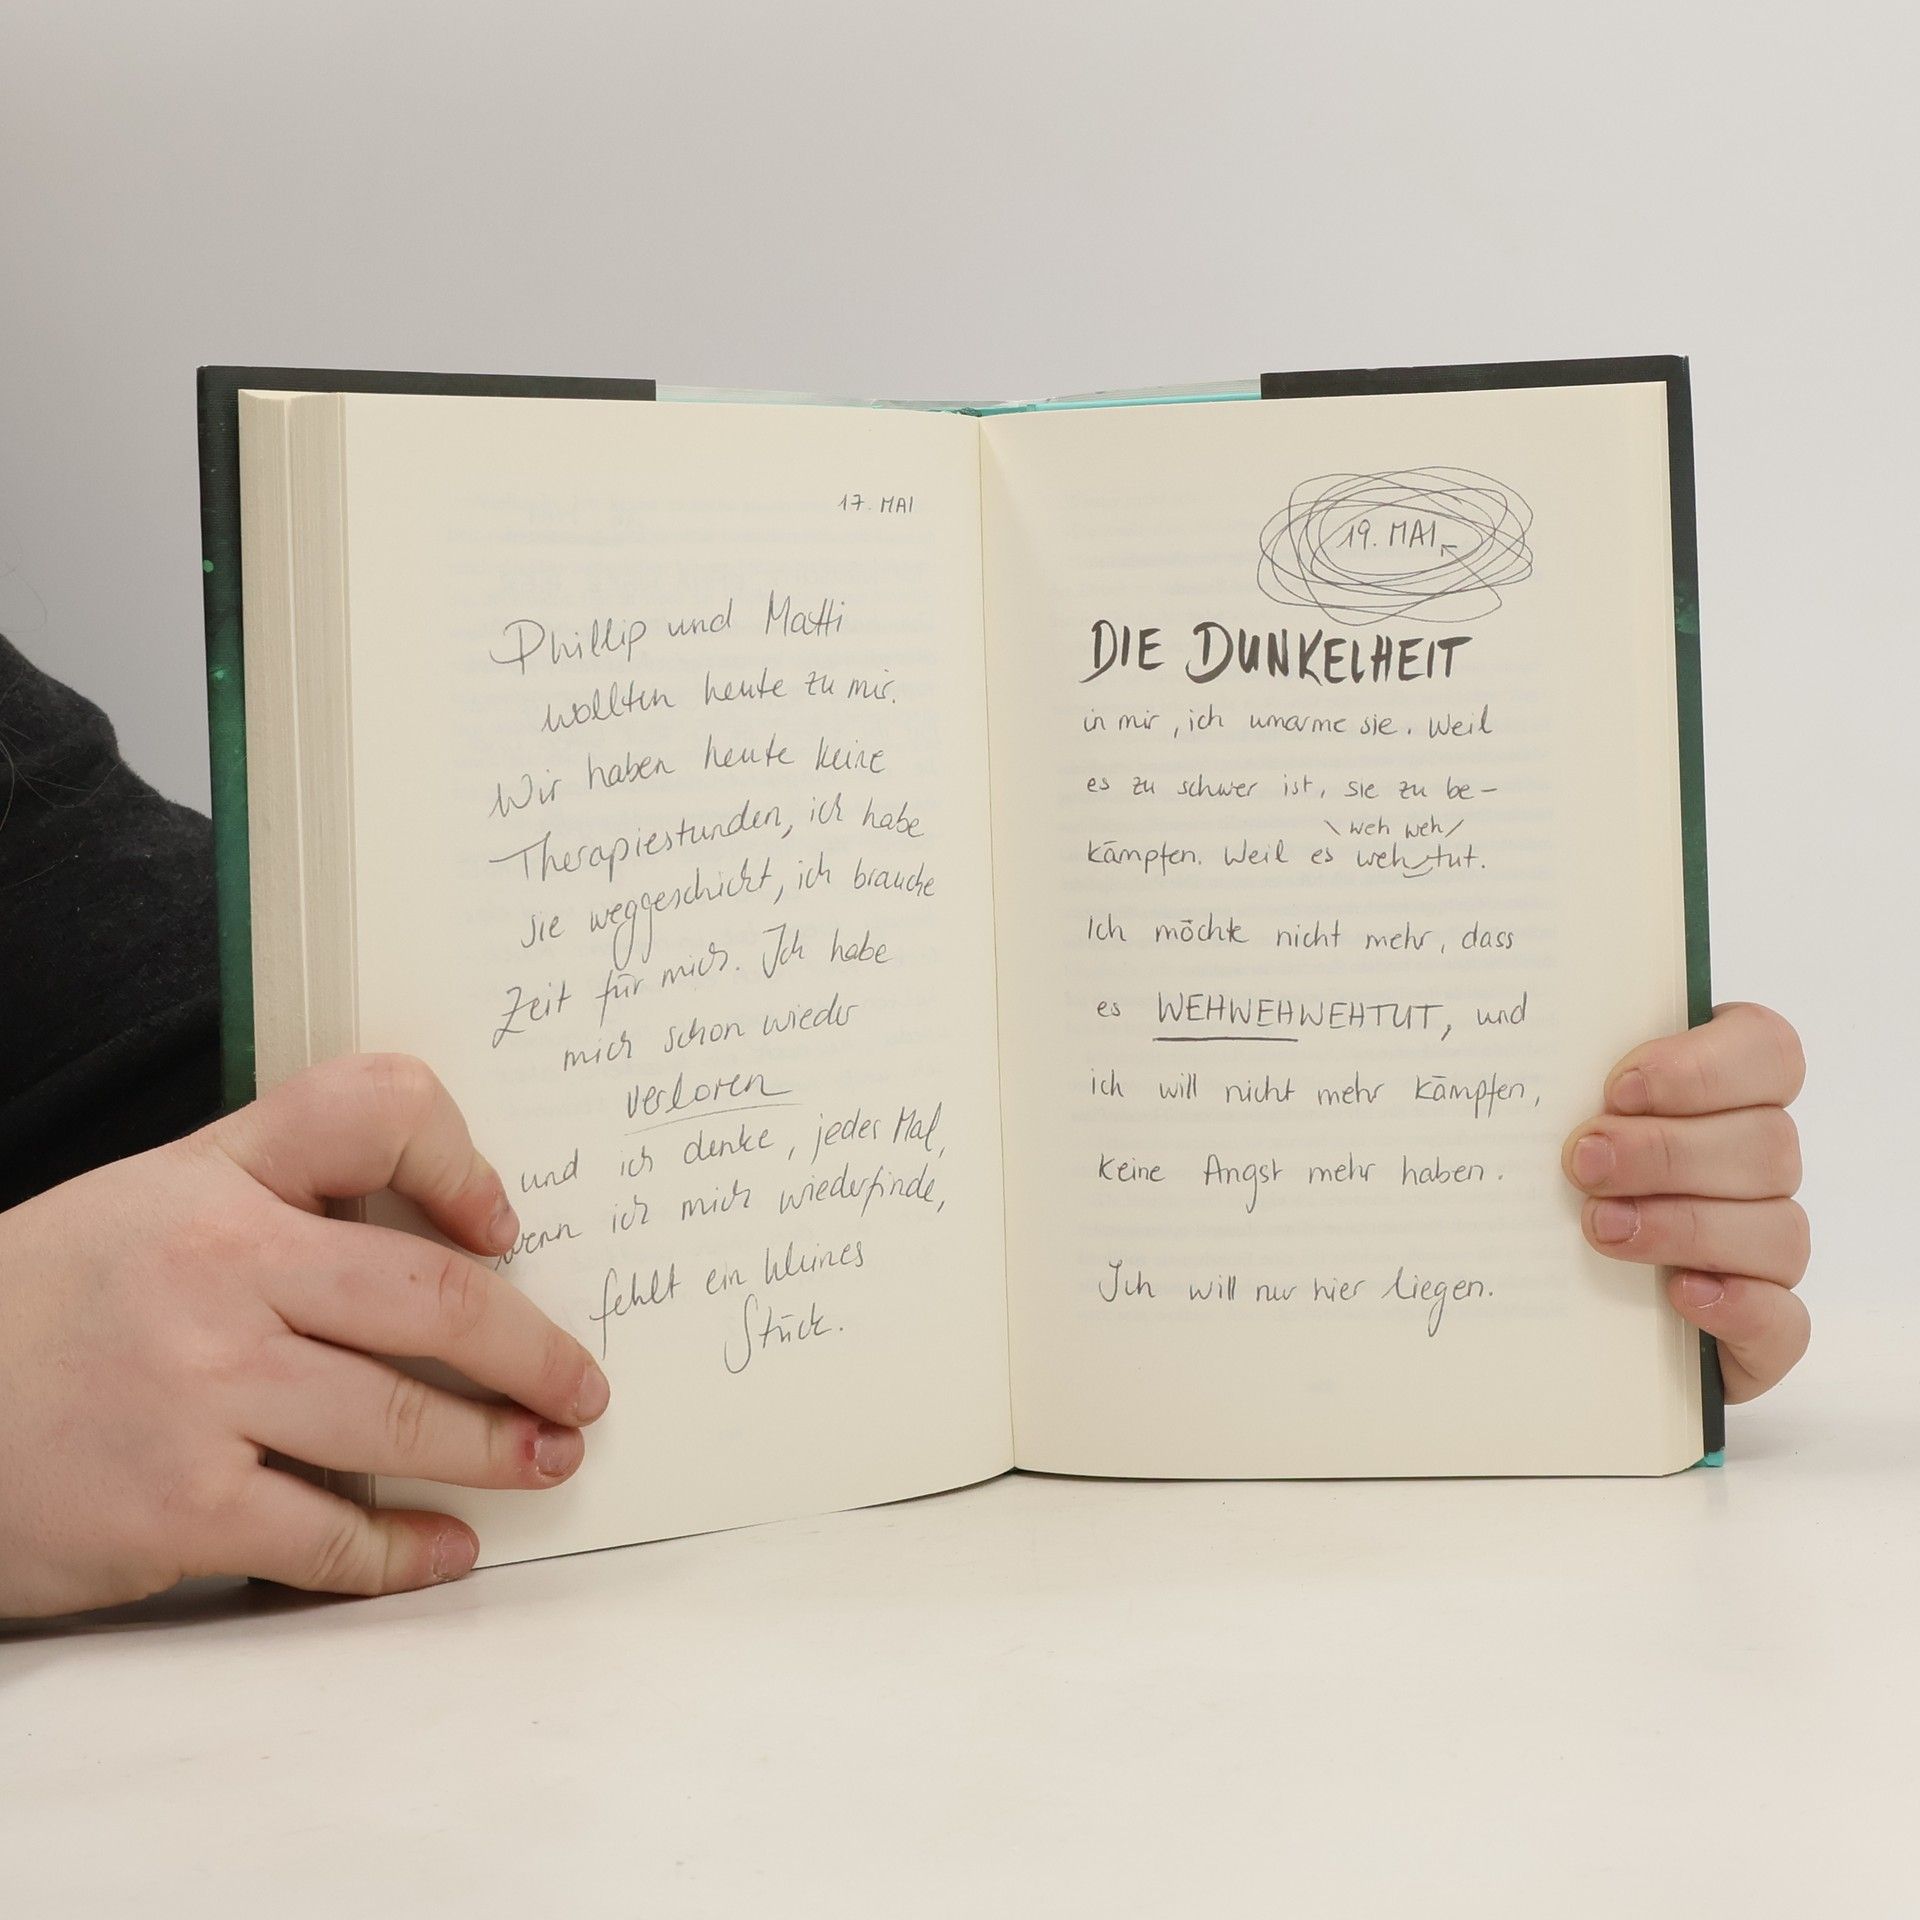 17. MAI
Phillip und Matti
wollten heute zu mir.
Wir haben heute keine
Therapiestunden, ich habe
sie weggeschickt, ich brauche
Zeit für mich. Ich habe
mich schon wieder
verloren
und ich denke, jedes Mal,
wenn ich mich wiederfinde,
fehlt ein kleines
Stück.
19. MAI
DIE DUNKELHEIT
in mir, ich umarme sie. Weil
es zu schwer ist, sie zu be-
weh weh
kämpfen. Weil es weh tut.
Ich möchte nicht mehr, dass
es WEHWEHWEHTUT, und
ich will nicht mehr kämpfen,
keine Angst mehr haben.
Ich will nur hier liegen.